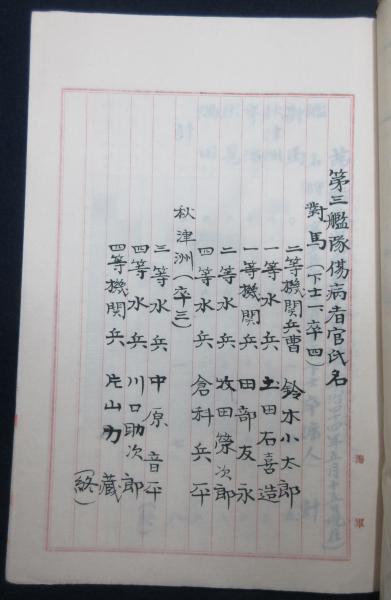 第三艦隊傷病者官氏名
對馬(下士一、卒四)
二等機関兵曹 鈴木小太郎
一等水兵 土田石喜造
一等機関兵 田部友永
二等水兵 牧田榮次郎
四等水兵 倉科兵平
秋津洲(卒三)
三等水兵 中原音平
四等水兵 川口助次郎
四等機関兵 片山力藏
(終)
海軍